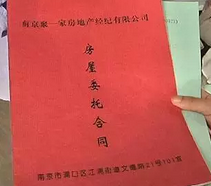 南京聚一家房地产经纪有限公司
房屋委托合同
南京市浦口区江浦街道文德路21号103室